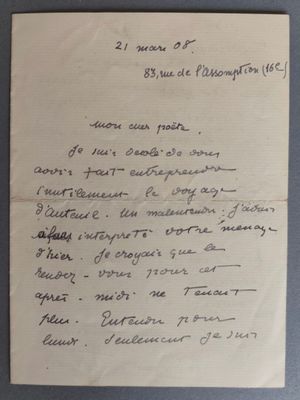 21 mars 08.
83, rue de l'assomption (16e)
Mon cher poète,
Je suis désolé de vous
avoir fait entreprendre
inutilement le voyage
d'Auteuil. Un malentendu. J'avais
interprété votre message
d'hier. Je croyais que le
rendez-vous pour cet
après-midi ne tenait
plus. Entendu pour
lundi. Seulement je suis